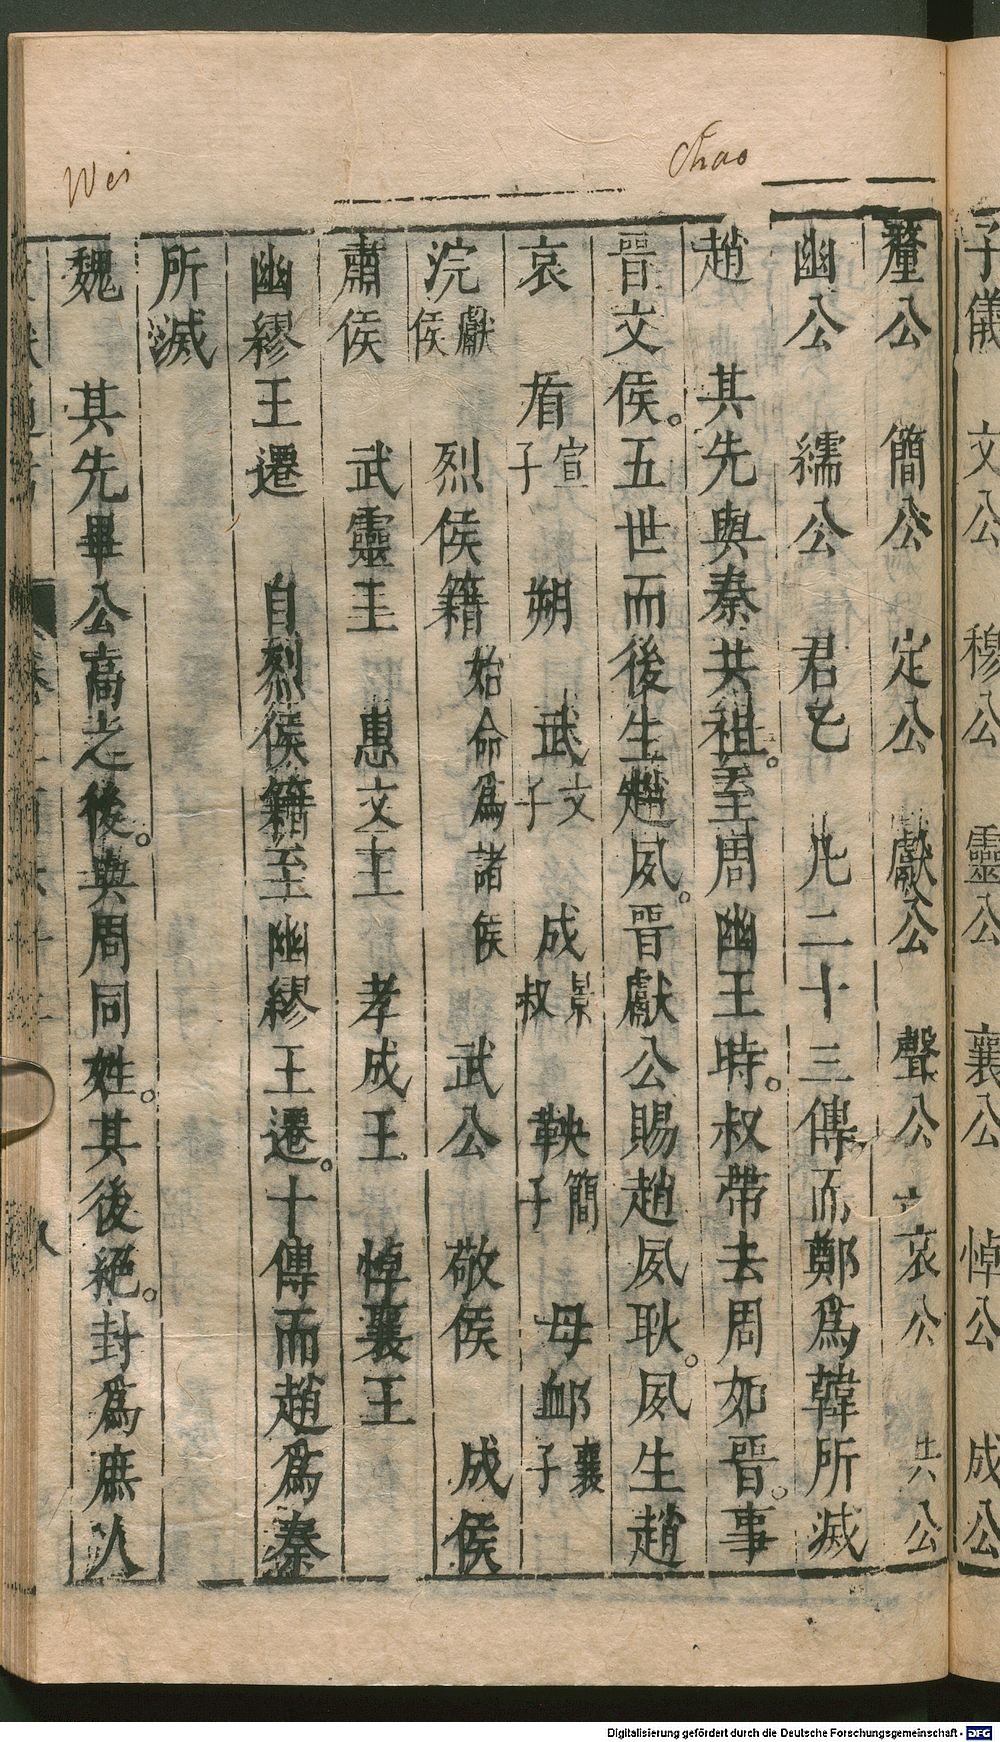 Chao
Wei
子儀 文公 穆公 靈公 襄公 悼公 成公
釐公 簡公 定公 獻公 聲公 哀公 共公
幽公 繻公 君乙 凡二十三傳而鄭爲韓所滅
趙 其先與秦共祖。至周幽王時。叔帶去周如晉。事
晉文侯。五世而後生趙夙。晉獻公賜趙夙耿。夙生趙
哀 盾宣子 朔 武文子 成景叔 鞅簡子 母卹襄子
浣獻侯 烈侯籍始命爲諸侯 武公 敬侯 成侯
肅侯 武靈王 惠文王 孝成王 悼襄王
幽繆王遷 自烈侯籍至幽繆王遷。十傳而趙爲秦
所滅
魏 其先畢公高之後。與周同姓。其後絕。封爲庶人
八
Digitalisierung gefördert durch die Deutsche Forschungsgemeinschaft - DFG